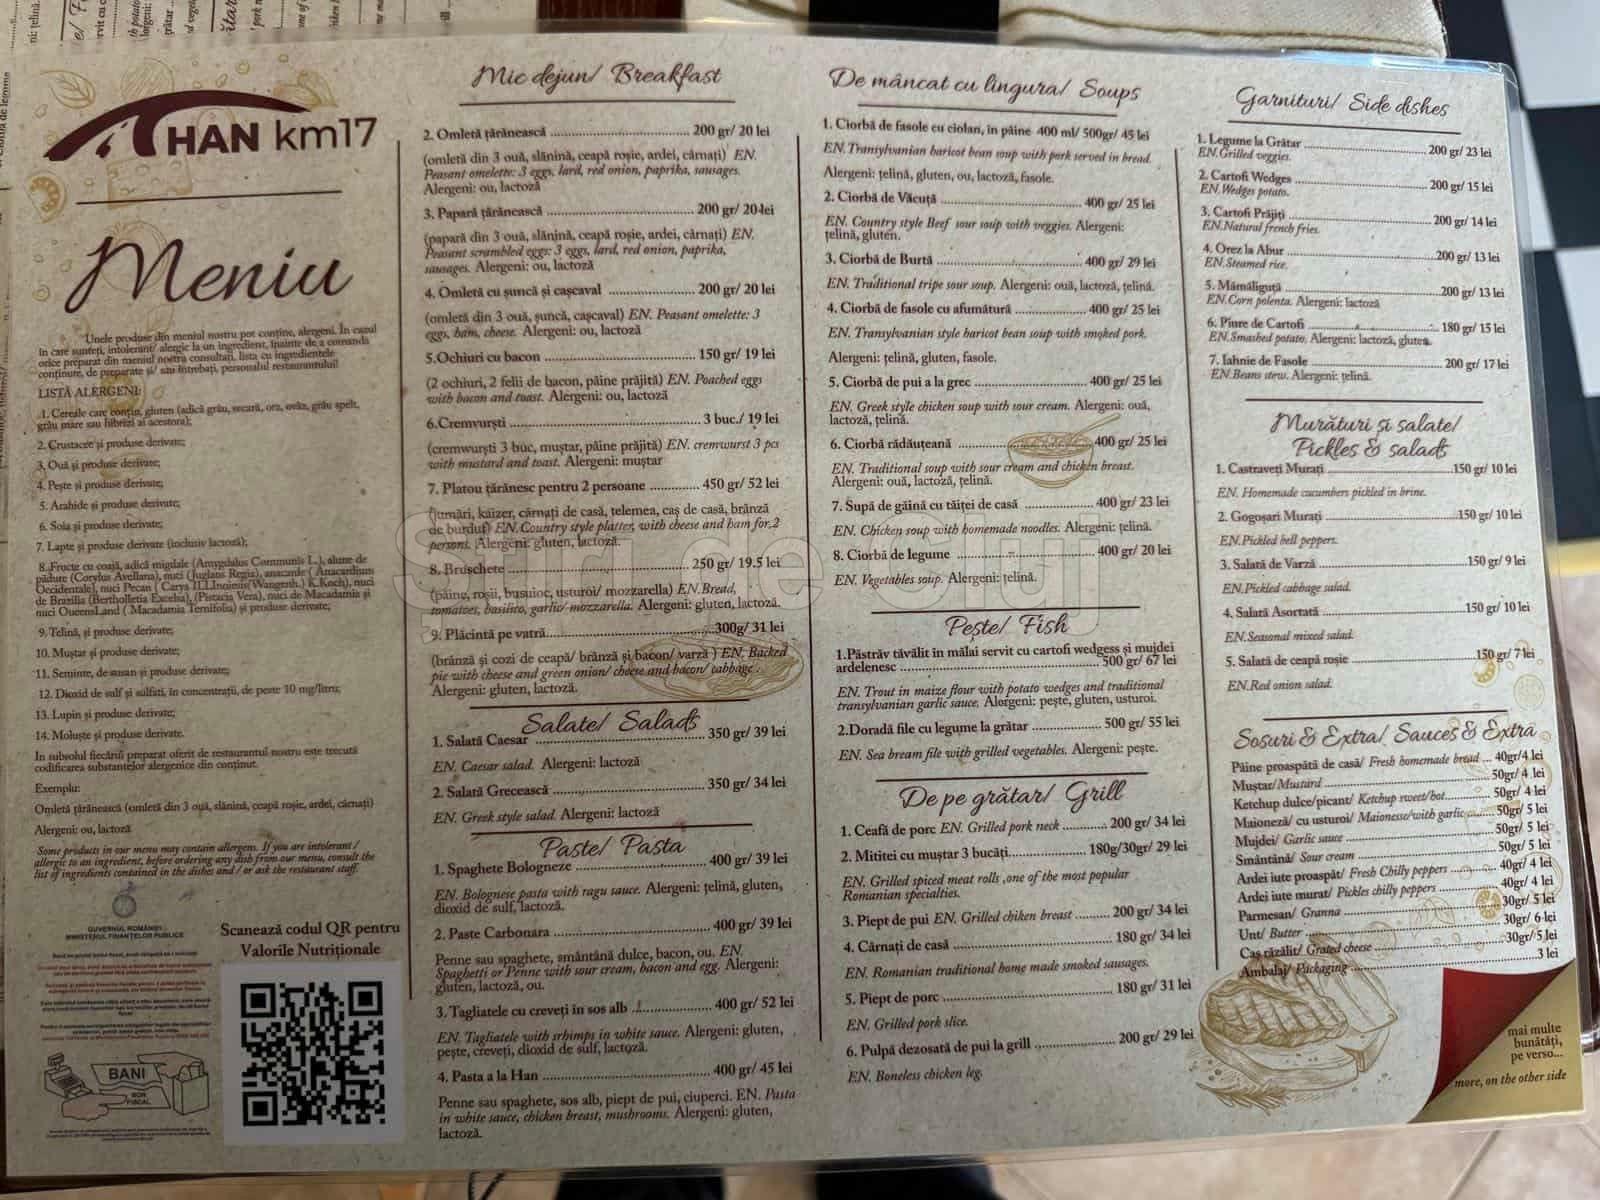 HAN km17
Meniu
Unele produse din meniul nostru pot conține, alergeni. În cazul
în care sunteți, intolerant/ alergic la un ingredient, înainte de a comanda
orice preparat din meniul nostru consultați, lista cu ingredientele
conținute, de preparate și/ sau întrebați, personalul restaurantului!
LISTĂ ALERGENI:
1. Cereale care conțin, gluten (adică grâu, secară, orz, ovăz, grâu spelt,
grâu mare sau hibrizi ai acestora);
2. Crustacee și produse derivate;
3. Ouă și produse derivate;
4. Pește și produse derivate;
5. Arahide și produse derivate;
6. Soia și produse derivate;
7. Lapte și produse derivate (inclusiv lactoză);
8. Fructe cu coajă, adică migdale (Amygdalus Communis L.), alune de
pădure (Corylus Avellana), nuci (Juglans Regia), anacarde ( Anacardium
Occidentale), nuci Pecan ( Carya Wangenh.) K.Koch), nuci
de Brazilia (Bertholletia Excelsa), (Pistacia Vera), nuci de Macadamia și
nuci QueensLand ( Macadamia Ternifolia) și produse derivate;
9. Țelină, și produse derivate;
10. Muștar și produse derivate;
11. Semințe, de susan și produse derivate;
12. Dioxid de sulf și sulfați, în concentrații, de peste 10 mg/litru;
13. Lupin și produse derivate;
14. Moluște și produse derivate.
In subsolul fiecărui preparat oferit de restaurantul nostru este trecută
codificarea substanțelor alergenice din conținut.
Exemplu:
Omletă țărănească (omletă din 3 ouă, slănină, ceapă roșie, ardei, cârnați)
Alergeni: ou, lactoză
Some products in our menu may contain allergens. If you are intolerant /
allergic to an ingredient, before ordering any dish from our menu, consult the
list of ingredients contained in the dishes and / or ask the restaurant staff.
GUVERNUL ROMÂNIEI
MINISTERUL FINANȚELOR PUBLICE
BANI
BON
FISCAL
Scanează codul QR pentru
Valorile Nutriționale
Mic dejun/ Breakfast
2. Omletă țărănească 200 gr/ 20 lei
(omletă din 3 ouă, slănină, ceapă roșie, ardei, cârnați) EN.
Peasant omelette: 3 eggs, lard, red onion, paprika, sausages.
Alergeni: ou, lactoză
3. Papară țărănească 200 gr/ 20 lei
(papară din 3 ouă, slănină, ceapă roșie, ardei, cârnați) EN.
Peasant scrambled eggs: 3 eggs, lard, red onion, paprika,
sausages. Alergeni: ou, lactoză
4. Omletă cu șuncă și cașcaval 200 gr/ 20 lei
(omletă din 3 ouă, șuncă, cașcaval) EN. Peasant omelette: 3
eggs, ham, cheese. Alergeni: ou, lactoză
5.Ochiuri cu bacon 150 gr/ 19 lei
(2 ochiuri, 2 felii de bacon, pâine prăjită) EN. Poached eggs
with bacon and toast. Alergeni: ou, lactoză
6.Cremvurști 3 buc./ 19 lei
(cremwurști 3 buc, muștar, pâine prăjită) EN. cremwurst 3 pcs
with mustard and toast. Alergeni: muștar
7. Platou țărănesc pentru 2 persoane 450 gr/ 52 lei
(jumări, kaizer, cârnați de casă, telemea, caș de casă, brânză
de burduf) EN.Country style platter, with cheese and ham for,2
persons. Alergeni: gluten, lactoză.
8. Bruschete 250 gr/ 19.5 lei
(pâine, roșii, busuioc, usturoi/ mozzarella) EN.Bread,
tomatoes, basilico, garlic/ mozzarella. Alergeni: gluten, lactoză.
9. Plăcintă pe vatră 300g/ 31 lei
(brânză și cozi de ceapă/ brânză și bacon/ varză ) EN. Backed
pie with cheese and green onion/ cheese and bacon/ cabbage .
Alergeni: gluten, lactoză.
Salate/ Salads
1. Salată Caesar 350 gr/ 39 lei
EN. Caesar salad. Alergeni: lactoză
2. Salată Grecească 350 gr/ 34 lei
EN. Greek style salad. Alergeni: lactoză
Paste/ Pasta
1. Spaghete Bologneze 400 gr/ 39 lei
EN. Bolognese pasta with ragu sauce. Alergeni: țelină, gluten,
dioxid de sulf, lactoză.
2. Paste Carbonara 400 gr/ 39 lei
Penne sau spaghete, smântână dulce, bacon, ou. EN.
Spaghetti or Penne with sour cream, bacon and egg. Alergeni:
gluten, lactoză, ou.
3. Tagliatele cu creveți în sos alb 400 gr/ 52 lei
EN. Tagliatele with srhimps in white sauce. Alergeni: gluten,
pește, creveți, dioxid de sulf, lactoză.
4. Pasta a la Han 400 gr/ 45 lei
Penne sau spaghete, sos alb, piept de pui, ciuperci. EN. Pasta
in white sauce, chicken breast, mushrooms. Alergeni: gluten,
lactoză.
De mâncat cu lingura/ Soups
1. Ciorbă de fasole cu ciolan, în pâine 400 ml/ 500gr/ 45 lei
EN. Transylvanian haricot bean soup with pork served in bread.
Alergeni: țelină, gluten, ou, lactoză, fasole.
2. Ciorbă de Văcuță 400 gr/ 25 lei
EN. Country style Beef sour soup with veggies. Alergeni:
țelină, gluten.
3. Ciorbă de Burtă 400 gr/ 29 lei
EN. Traditional tripe sour soup. Alergeni: ouă, lactoză, țelină.
4. Ciorbă de fasole cu afumătură 400 gr/ 25 lei
EN. Transylvanian style haricot bean soup with smoked pork.
Alergeni: țelină, gluten, fasole.
5. Ciorbă de pui a la grec 400 gr/ 25 lei
EN. Greek style chicken soup with sour cream. Alergeni: ouă,
lactoză, țelină.
6. Ciorbă rădăuțeană 400 gr/ 25 lei
EN. Traditional soup with sour cream and chicken breast.
Alergeni: ouă, lactoză, țelină.
7. Supă de găină cu tăiței de casă 400 gr/ 23 lei
EN. Chicken soup with homemade noodles. Alergeni: țelină.
8. Ciorbă de legume 400 gr/ 20 lei
EN. Vegetables soup. Alergeni: țelină.
Pește/ Fish
1.Păstrăv tăvălit în mălai servit cu cartofi wedgess și mujdei
ardelenesc 500 gr/ 67 lei
EN. Trout in maize flour with potato wedges and traditional
transylvanian garlic sauce. Alergeni: pește, gluten, usturoi.
2.Doradă file cu legume la grătar 500 gr/ 55 lei
EN. Sea bream file with grilled vegetables. Alergeni: pește.
De pe grătar/ Grill
1. Ceafă de porc EN. Grilled pork neck 200 gr/ 34 lei
2. Mititei cu muștar 3 bucăți 180g/30gr/ 29 lei
EN. Grilled spiced meat rolls ,one of the most popular
Romanian specialties.
3. Piept de pui EN. Grilled chiken breast 200 gr/ 34 lei
4. Cârnați de casă 180 gr/ 34 lei
EN. Romanian traditional home made smoked sausages.
5. Piept de porc 180 gr/ 31 lei
EN. Grilled pork slice.
6. Pulpă dezosată de pui la grill 200 gr/ 29 lei
EN. Boneless chicken leg.
Garnituri/ Side dishes
1. Legume la Grătar 200 gr/ 23 lei
EN.Grilled veggies.
2. Cartofi Wedges 200 gr/ 15 lei
EN.Wedges potato.
3. Cartofi Prăjiți 200 gr/ 14 lei
EN.Natural french fries.
4. Orez la Abur 200 gr/ 13 lei
EN.Steamed rice.
5. Mămăliguță 200 gr/ 13 lei
EN.Corn polenta. Alergeni: lactoză
6. Piure de Cartofi 180 gr/ 15 lei
EN.Smashed potato. Alergeni: lactoză, gluten.
7. Iahnie de Fasole 200 gr/ 17 lei
EN.Beans stew. Alergeni: țelină.
Murături și salate/
Pickles & salads
1. Castraveți Murați 150 gr/ 10 lei
EN. Homemade cucumbers pickled in brine.
2. Gogoșari Murați 150 gr/ 10 lei
EN.Pickled bell peppers.
3. Salată de Varză 150 gr/ 9 lei
EN.Pickled cabbage salad.
4. Salată Asortată 150 gr/ 10 lei
EN.Seasonal mixed salad.
5. Salată de ceapă roșie 150 gr/ 7 lei
EN.Red onion salad.
Sosuri & Extra/ Sauces & Extra
Pâine proaspătă de casă/ Fresh homemade bread 40gr/4 lei
Muștar/Mustard 50gr/ 4 lei
Ketchup dulce/picant/ Ketchup sweet/hot 50gr/ 4 lei
Maioneză/ cu usturoi/ Maionesse/with garlic 50gr/ 5 lei
Mujdei/ Garlic sauce 50gr/ 5 lei
Smântână/ Sour cream 50gr/ 5 lei
Ardei iute proaspăt/ Fresh Chilly peppers 40gr/ 4 lei
Ardei iute murat/ Pickles chilly peppers 40gr/ 4 lei
Parmesan/ Granna 30gr/ 5 lei
Unt/ Butter 30gr/ 6 lei
Caș răzălit/ Grated cheese 30gr/ 5 lei
Ambalaj/ Packaging 3 lei
mai multe
bunătăți,
pe verso...
more, on the other side
Știri de Cluj